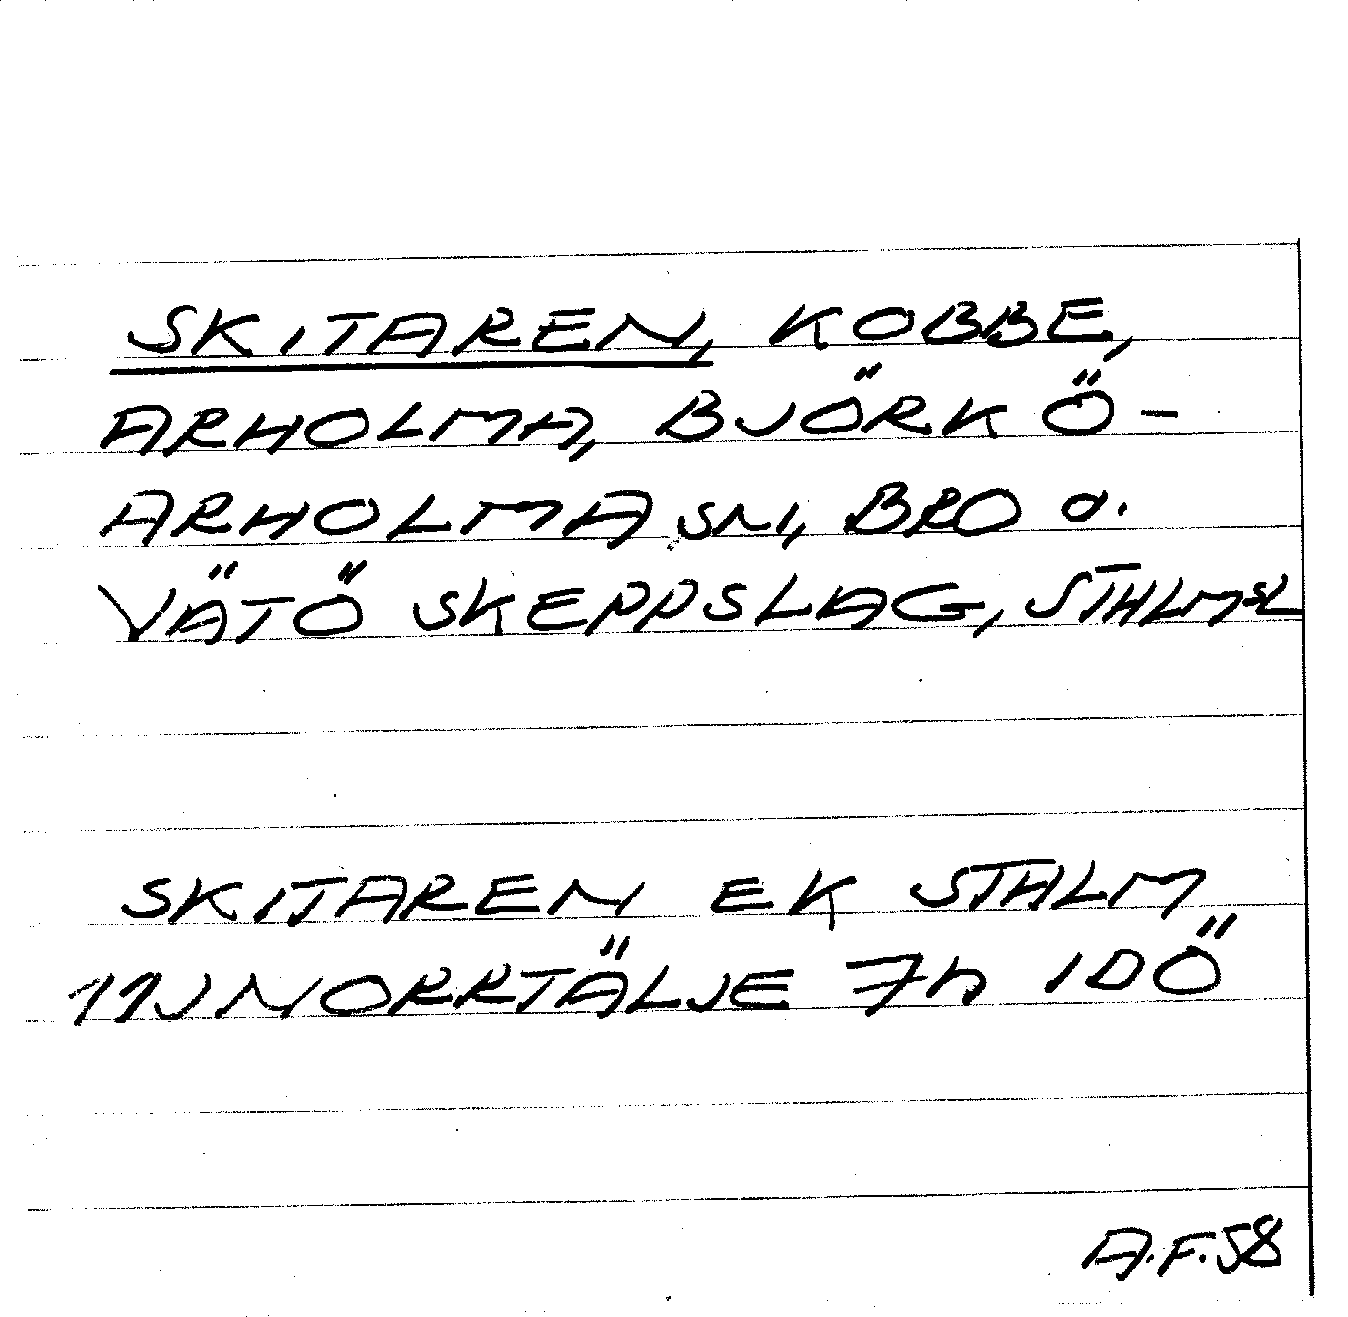 SKITAREN, KOBBE,
ARHOLMA, BJÖRKÖ-
ARHOLMA SN, BRO O.
VÄTÖ SKEPPSLAG, STHLMSL
SKITAREN EK STHLM
11J NORRTÄLJE 7h IDÖ
A.F.58